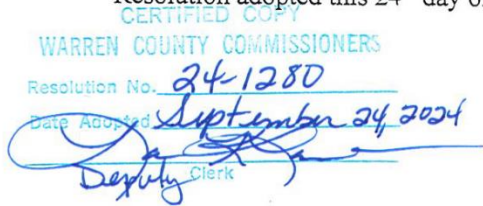 Resolution adopted this 24 day of
CERTIFIED COPY
WARREN COUNTY COMMISSIONERS
Resolution No. 24-1280
Date Adopted September 24, 2024
Deputy Clerk